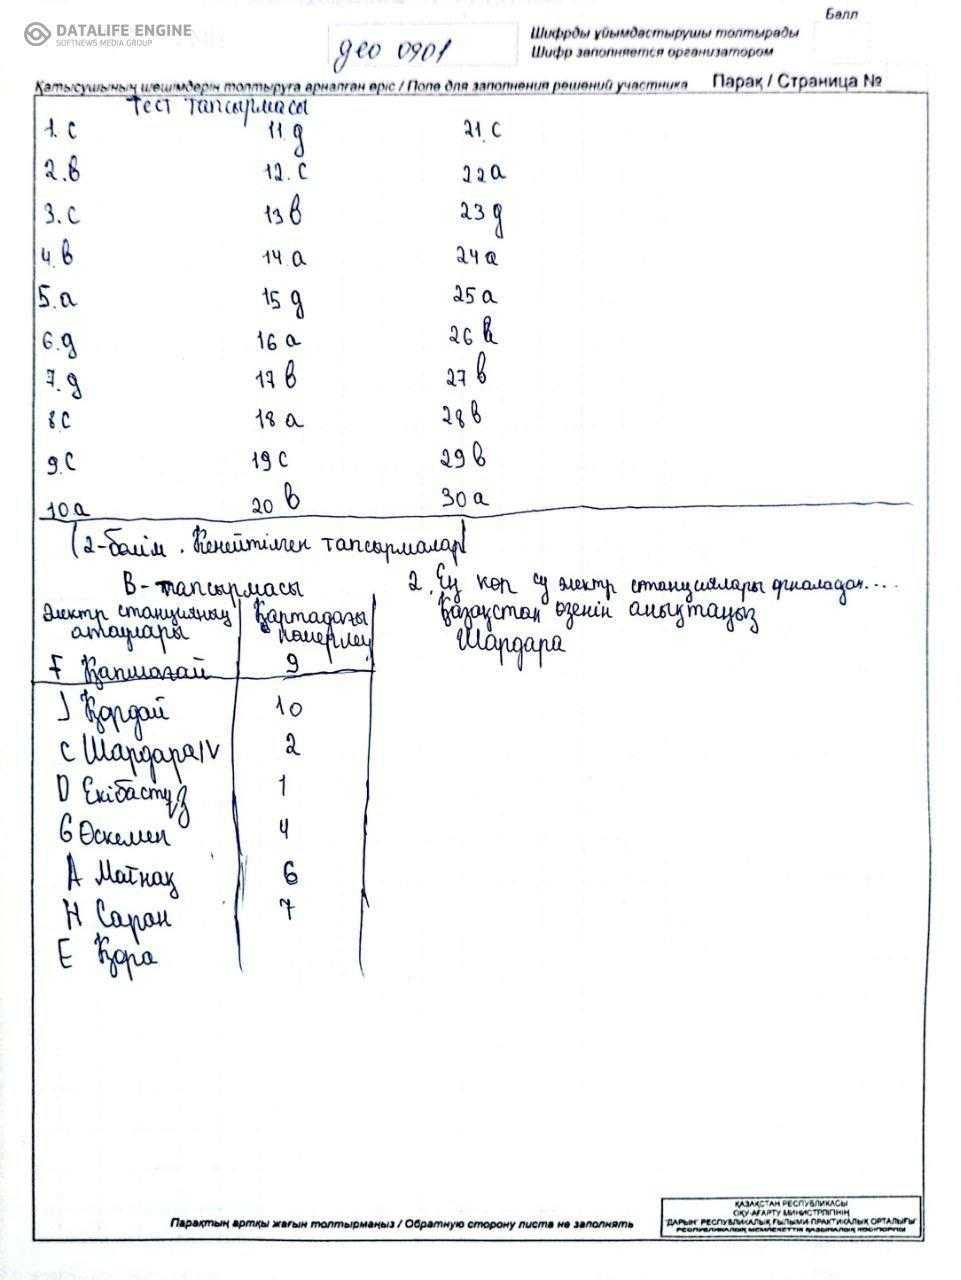 DATALIFE ENGINE
SOFTNEWS MEDIA GROUP
Балл
geo 0901
Шифрды ұйымдастырушы толтырады
Шифр заполняется организатором
Қатысушының шешімдерін толтыруға арналған өріс / Поле для заполнения решений участника
Парақ / Страница №
Тест тапсырмасы
1. с 11 д 21. с
2. в 12. с 22 а
3. с 13 в 23 д
4. в 14. а 24 а
5. а 15 д 25 а
6. д 16 а 26 в
7. д 17 в 27 в
8. с 18 а 28 в
9. с 19 с 29 в
10 а 20 в 30 а
2-бөлім. Кеңейтілген тапсырмалар
В-тапсырмасы
Электр станцияның атаулары
Қартадағы нөмерлеу
F Қапшағай 9
J Қордай 10
C Шардара IV 2
D Екібастұз 1
G Өскемен 4
A Майнақ 6
H Саран 7
E Қора
2. Ең көп су электр станциялары орналасқан....
Қазақстан өзенін анықтаңыз
Шардара
Парақтың артқы жағын толтырмаңыз / Обратную сторону листа не заполнять
ҚАЗАҚСТАН РЕСПУБЛИКАСЫ
ОҚУ-АҒАРТУ МИНИСТРЛІГІНІҢ
"ДАРЫН" РЕСПУБЛИКАЛЫҚ ҒЫЛЫМИ-ПРАКТИКАЛЫҚ ОРТАЛЫҒЫ"
РЕСПУБЛИКАЛЫҚ МЕМЛЕКЕТТІК ҚАЗЫНАЛЫҚ КӘСІПОРНЫ